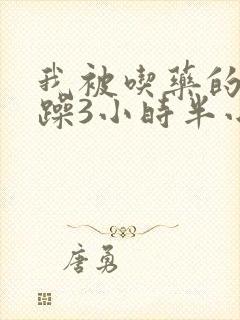 我被喫藥的
躁3小時半小
唐勇